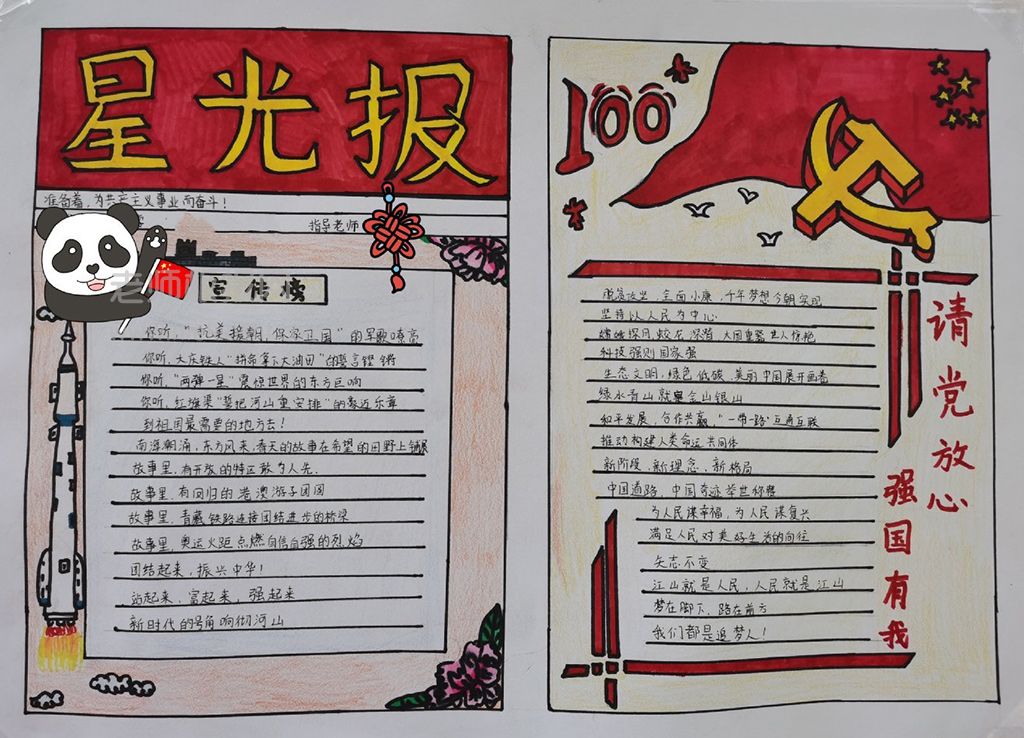 星光报
准备着，为共产主义事业而奋斗！
指导老师
宣传榜
你听，“抗美援朝，保家卫国”的军歌嘹亮
你听，大庆铁人“拼命拿下大油田”的誓言铿锵
你听，“两弹一星”震惊世界的东方巨响
你听，红旗渠“誓把河山重安排”的豪迈乐章
到祖国最需要的地方去！
南海潮涌，东方风来，春天的故事在希望的田野上铺展
故事里，有开放的特区敢为人先
故事里，有回归的港澳游子团圆
故事里，青藏铁路连接团结进步的桥梁
故事里，奥运火炬点燃自信自强的烈焰
团结起来，振兴中华！
站起来、富起来、强起来
新时代的号角响彻河山
100
脱贫攻坚，全面小康，千年梦想今朝实现
坚持以人民为中心
嫦娥探月，蛟龙深潜，大国重器世人惊艳
科技强则国家强
生态文明，绿色低碳，美丽中国展开画卷
绿水青山就是金山银山
和平发展，合作共赢，“一带一路”互通互联
推动构建人类命运共同体
新阶段、新理念、新格局
中国道路，中国奇迹举世称赞
为人民谋幸福，为人民谋复兴
满足人民对美好生活的向往
矢志不变
江山就是人民，人民就是江山
梦在脚下，路在前方
我们都是追梦人！
请党放心
强国有我